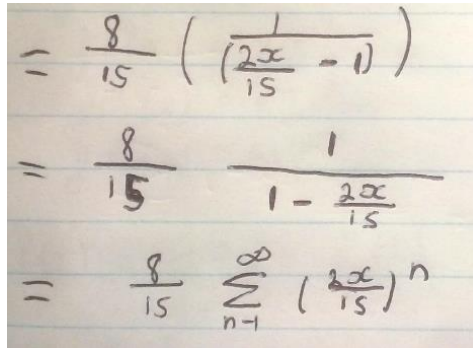 = 8/15 ( 1/(2x/15 - 1) )
= 8/15 1/(1 - 2x/15)
= 8/15 ∞∑n-1 (2x/15)^n